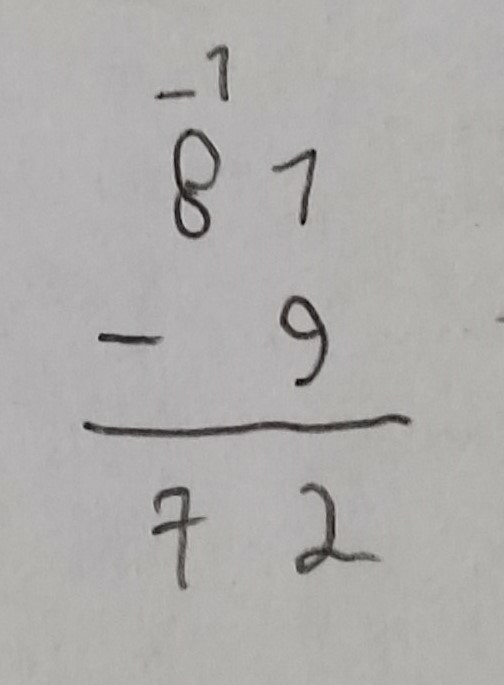 -1
81
- 9
72